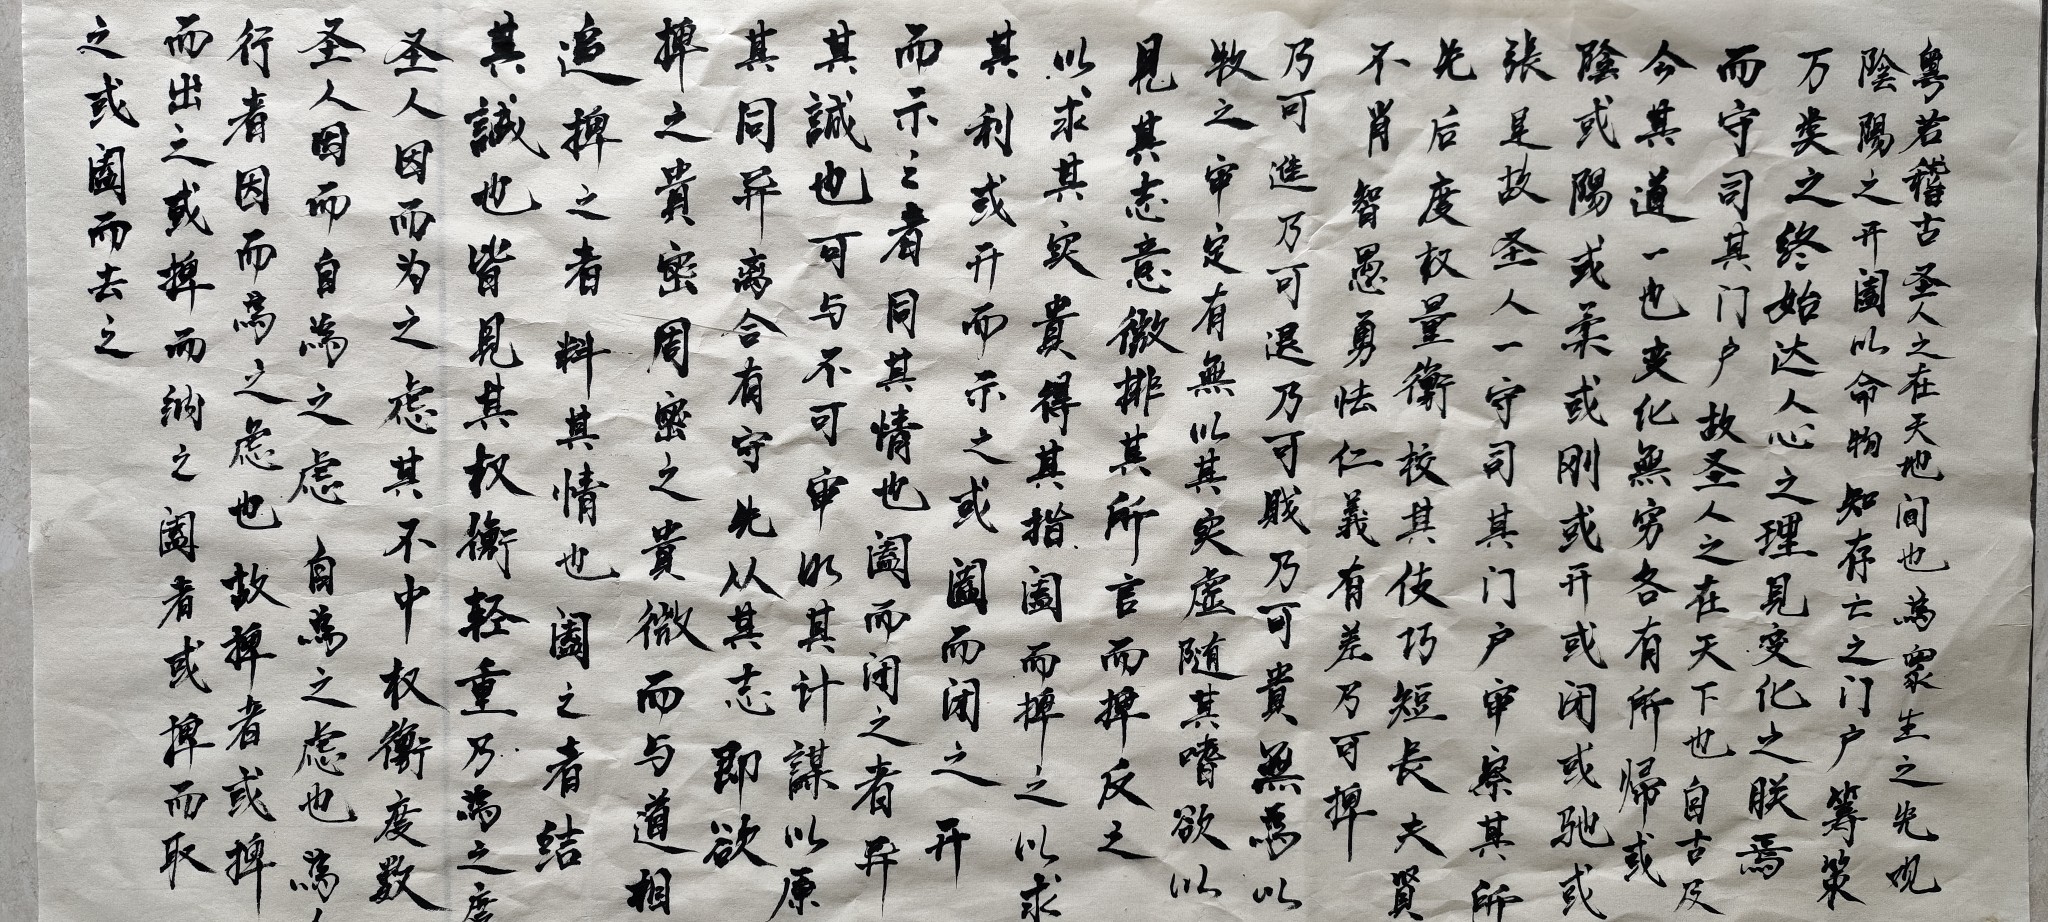 粤若稽古圣人之在天地间也為眾生之先观
陰陽之开阖以命物知存亡之门户筹策
万类之终始达人心之理見变化之朕焉
而守司其门户故圣人之在天下也自古及
今其道一也变化無穷各有所帰或
陰或陽或柔或刚或开或闭或驰或
張是故圣人一守司其门户审察其所
先后度权量衡校其伎巧短長夫賢
不肖智愚勇怯仁義有差乃可捭
乃可進乃可退乃可賤乃可貴無為以
牧之审定有無以其实虚随其嗜欲以
見其志意微排其所言而捭反之
以求其实貴得其指阖而捭之以求
其利或开而示之或阖而闭之开
而示之者同其情也阖而闭之者异
其誠也可与不可审明其计謀以原
其同异离合有守先从其志即欲
捭之貴密周密之貴微而与道相
追捭之者料其情也阖之者结
其誠也皆見其权衡轻重乃為之度
圣人因而为之虑其不中权衡度数
圣人因而自為之虑自為之虑也為人
行者因而為之虑也故捭者或捭
而出之或捭而纳之阖者或捭而取
之或阖而去之